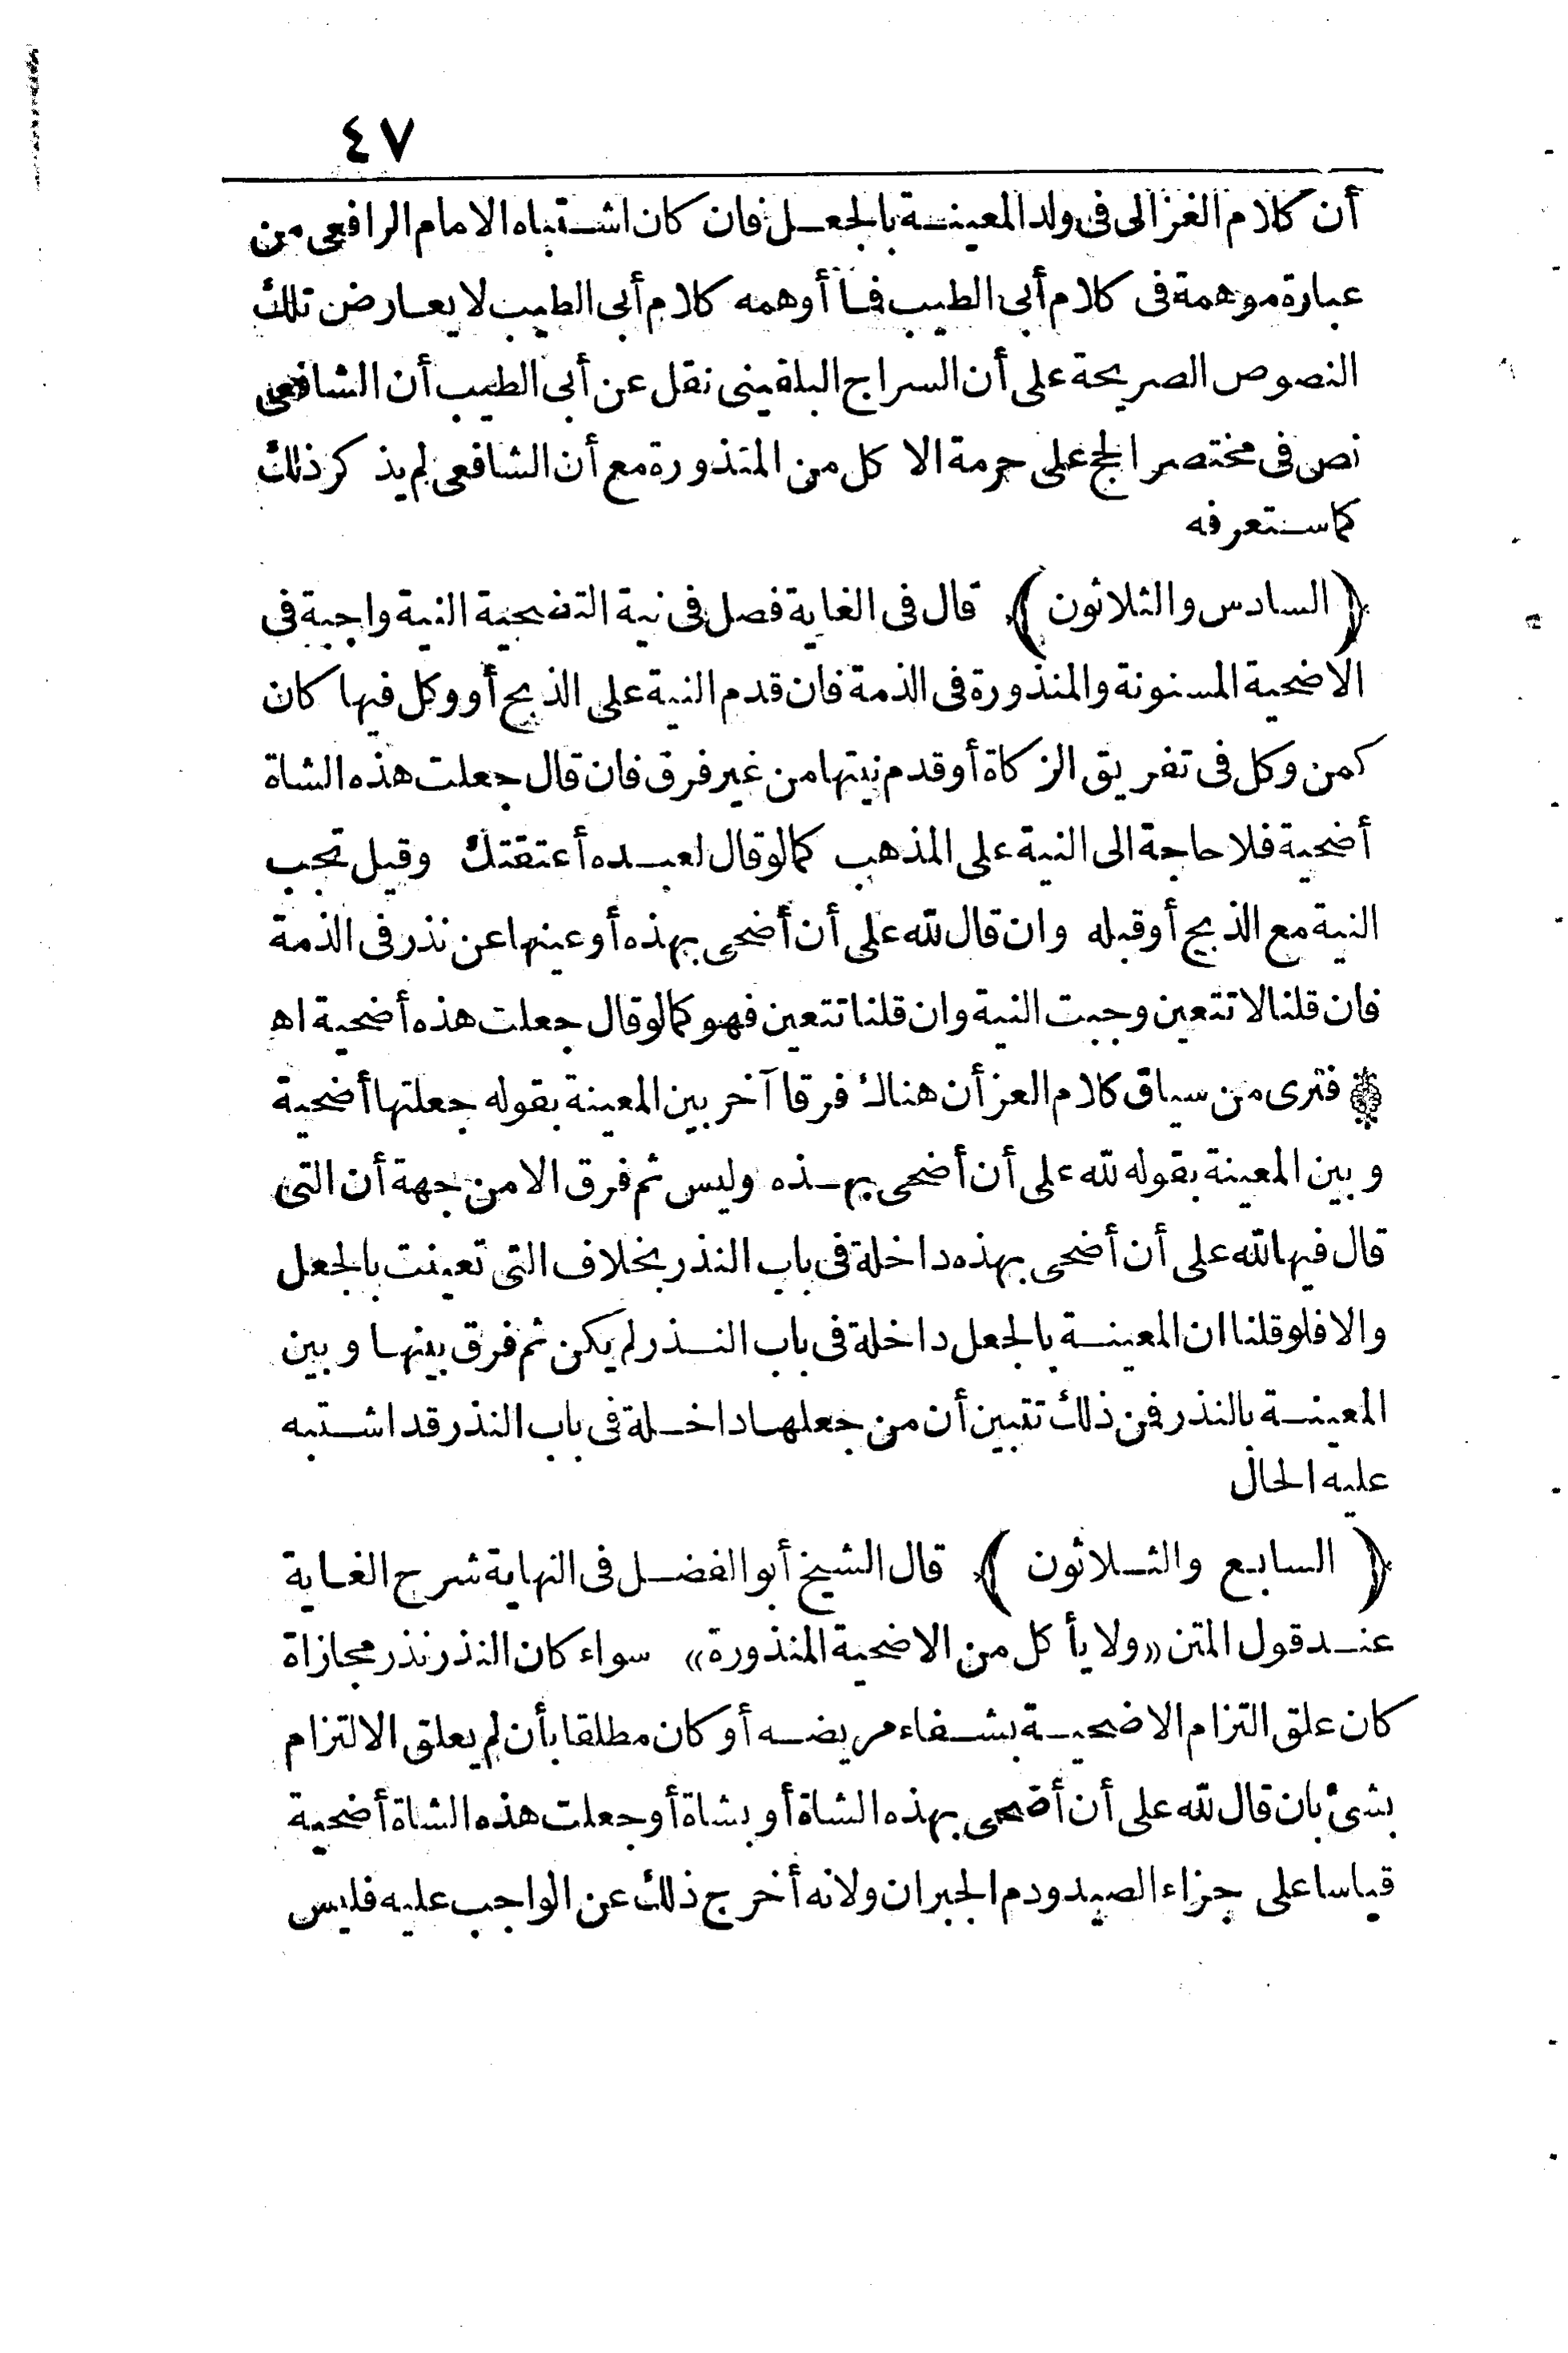 ٤٧
أن كلام الغزالى فى ولد المعينة بالجعل فان كان اشتباه الامام الرافعى من
عبارة موهمة فى كلام أبى الطيب فما أوهمه كلام أبى الطيب لا يعارض تلك
النصوص الصريحة على أن السراج البلقينى نقل عن أبى الطيب أن الشافعى
نص فى مختصر الحج على حرمة الاكل من المنذورة مع أن الشافعى لم يذكر ذلك
كما ستعرفه
﴿ السادس والثلاثون ﴾ قال فى الغاية فصل فى نية التضحية النية واجبة فى
الاضحية المسنونة والمنذورة فى الذمة فان قدم النية على الذبح أو وكل فيها كان
كمن وكل فى تفريق الزكاة أو قدم نيتها من غير فرق فان قال جعلت هذه الشاة
أضحية فلا حاجة الى النية على المذهب كما لو قال لعبده أعتقتك وقيل تجب
النية مع الذبح أو قبله وان قال لله على أن أضحى بهذه أو عينها عن نذر فى الذمة
فان قلنا لا تتعين وجبت النية وان قلنا تتعين فهو كما لو قال جعلت هذه أضحية اه
۞ فترى من سياق كلام العز أن هناك فرقا آخر بين المعينة بقوله جعلتها أضحية
وبين المعينة بقوله لله على أن أضحى بهذه وليس ثم فرق الا من جهة أن التى
قال فيها لله على أن أضحى بهذه داخلة فى باب النذر بخلاف التى تعينت بالجعل
والا فلو قلنا ان المعينة بالجعل داخلة فى باب النذر لم يكن ثم فرق بينها وبين
المعينة بالنذر فمن ذلك تتبين أن من جعلها داخلة فى باب النذر قد اشتبه
عليه الحال
﴿ السابع والثلاثون ﴾ قال الشيخ أبو الفضل فى النهاية شرح الغاية
عند قول المتن «ولا يأكل من الاضحية المنذورة» سواء كان النذر نذر مجازاة
كان علق التزام الاضحية بشفاء مريضه أو كان مطلقا بأن لم يعلق الالتزام
بشئ بان قال لله على أن أضحى بهذه الشاة أو بشاة أو جعلت هذه الشاة أضحية
قياسا على جزاء الصيد ودم الجبران ولانه أخرج ذلك عن الواجب عليه فليس